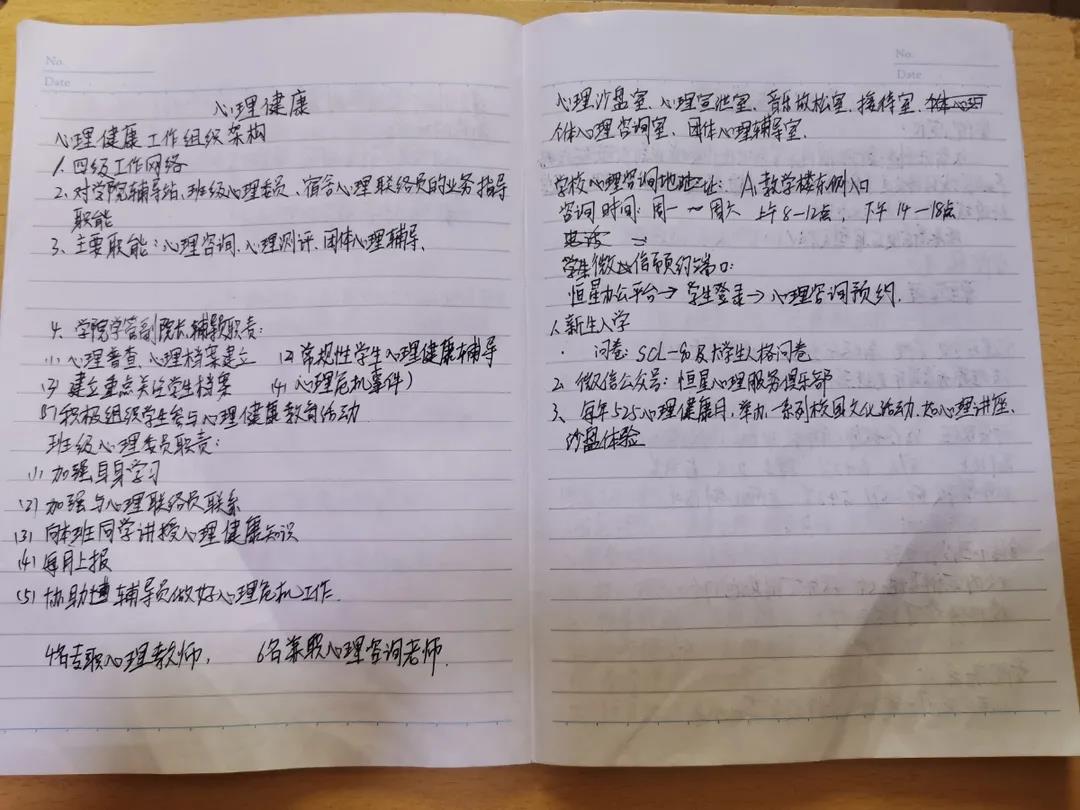 No.
Date
心理健康
心理健康工作组织架构
1. 四级工作网络
2. 对学院辅导站、班级心理委员、宿舍心理联络员的业务指导
职能
3. 主要职能：心理咨询、心理测评、团体心理辅导、
4. 学院学管副院长、辅导员职责：
(1) 心理普查、心理档案建立 (2) 常规性学生心理健康辅导
(3) 建立重点关注学生档案 (4) 心理危机事件)
(5) 积极组织学生参与心理健康教育活动
班级心理委员职责：
(1) 加强自身学习
(2) 加强与心理联络员联系
(3) 向本班同学讲授心理健康知识
(4) 每月上报
(5) 协助辅导员做好心理危机工作.
4名专职心理教师, 6名兼职心理咨询老师.
No.
Date
心理沙盘室、心理宣泄室、音乐放松室、接待室、
个体心理咨询室、团体心理辅导室.
学校心理咨询地址: A1教学楼东侧入口
咨询时间: 周一~周六 上午8-12点; 下午14-18点
学生微信预约端口:
恒星办公平台→学生登录→心理咨询预约.
1. 新生入学
· 问卷: SCL-90及大学生人格问卷
2. 微信公众号: 恒星心理服务俱乐部
3. 每年525心理健康月, 举办一系列校园文化活动, 如心理讲座、
沙盘体验